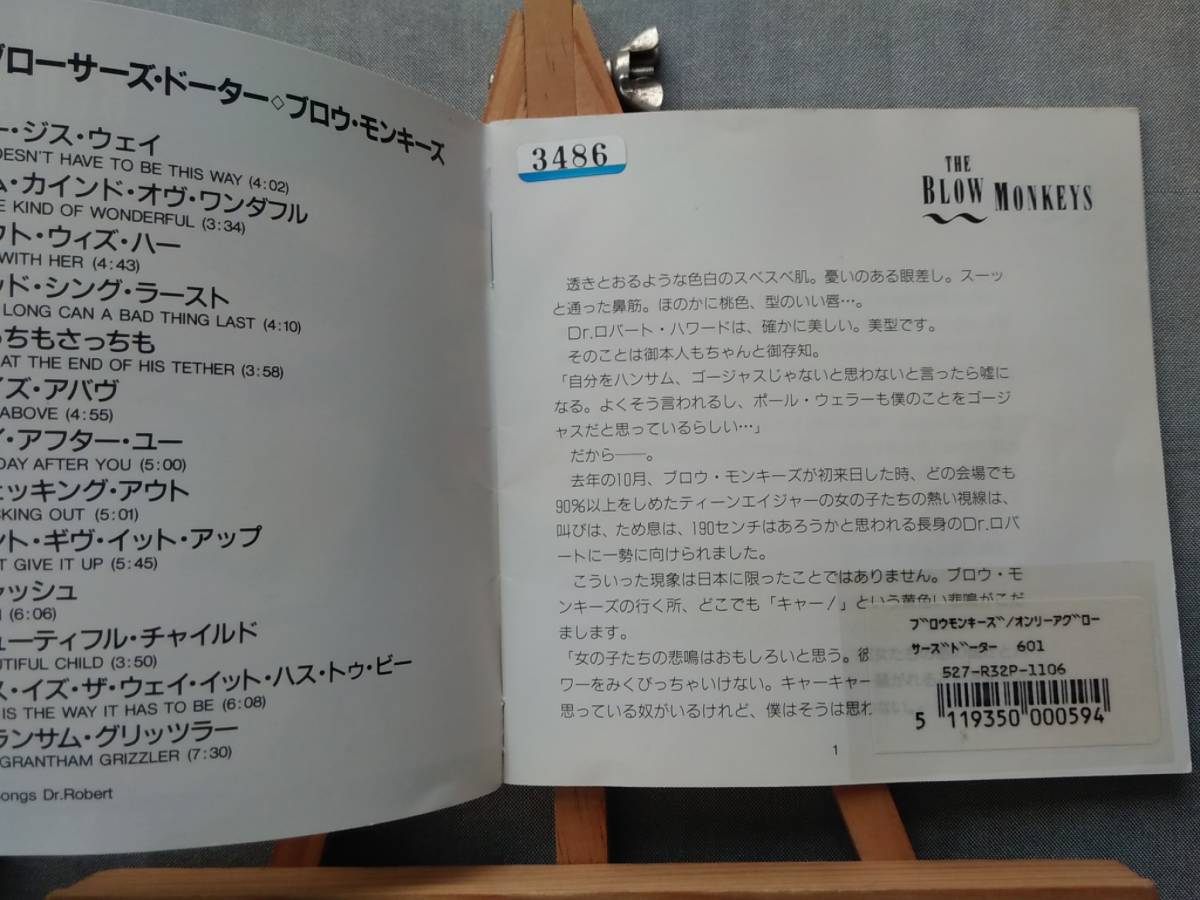 ローサーズ・ドーター◇ブロウ・モンキーズ
ー・ジス・ウェイ
DOESN'T HAVE TO BE THIS WAY (4:02)
ム・カインド・オヴ・ワンダフル
KIND OF WONDERFUL (3:34)
ウト・ウィズ・ハー
WITH HER (4:43)
ッド・シング・ラースト
LONG CAN A BAD THING LAST (4:10)
っちもさっちも
AT THE END OF HIS TETHER (3:58)
イズ・アバヴ
ABOVE (4:55)
イ・アフター・ユー
DAY AFTER YOU (5:00)
ェッキング・アウト
CKING OUT (5:01)
ント・ギヴ・イット・アップ
T GIVE IT UP (5:45)
ャッシュ
(6:06)
ューティフル・チャイルド
UTIFUL CHILD (3:50)
ス・イズ・ザ・ウェイ・イット・ハス・トゥ・ビー
IS THE WAY IT HAS TO BE (6:08)
ランサム・グリッツラー
GRANTHAM GRIZZLER (7:30)
ongs Dr.Robert
3486
THE
BLOW MONKEYS
透きとおるような色白のスベスベ肌。憂いのある眼差し。スーッ
と通った鼻筋。ほのかに桃色、型のいい唇…。
Dr.ロバート・ハワードは、確かに美しい。美型です。
そのことは御本人もちゃんと御存知。
「自分をハンサム、ゴージャスじゃないと思わないと言ったら嘘に
なる。よくそう言われるし、ポール・ウェラーも僕のことをゴージ
ャスだと思っているらしい…」
だから――。
去年の10月、ブロウ・モンキーズが初来日した時、どの会場でも
90％以上をしめたティーンエイジャーの女の子たちの熱い視線は、
叫びは、ため息は、190センチはあろうかと思われる長身のDr.ロバ
ートに一勢に向けられました。
こういった現象は日本に限ったことではありません。ブロウ・モ
ンキーズの行く所、どこでも「キャー！」という黄色い悲鳴がこだ
まします。
「女の子たちの悲鳴はおもしろいと思う。彼
ワーをみくびっちゃいけない。キャーキャー
思っている奴がいるけれど、僕はそうは思わ
1
ﾌﾞﾛｳﾓﾝｷｰｽﾞ/ｵﾝﾘｰｱｸﾞﾛｰ
ｻｰｽﾞﾄﾞｰﾀｰ 601
527-R32P-1106
5 119350 000594